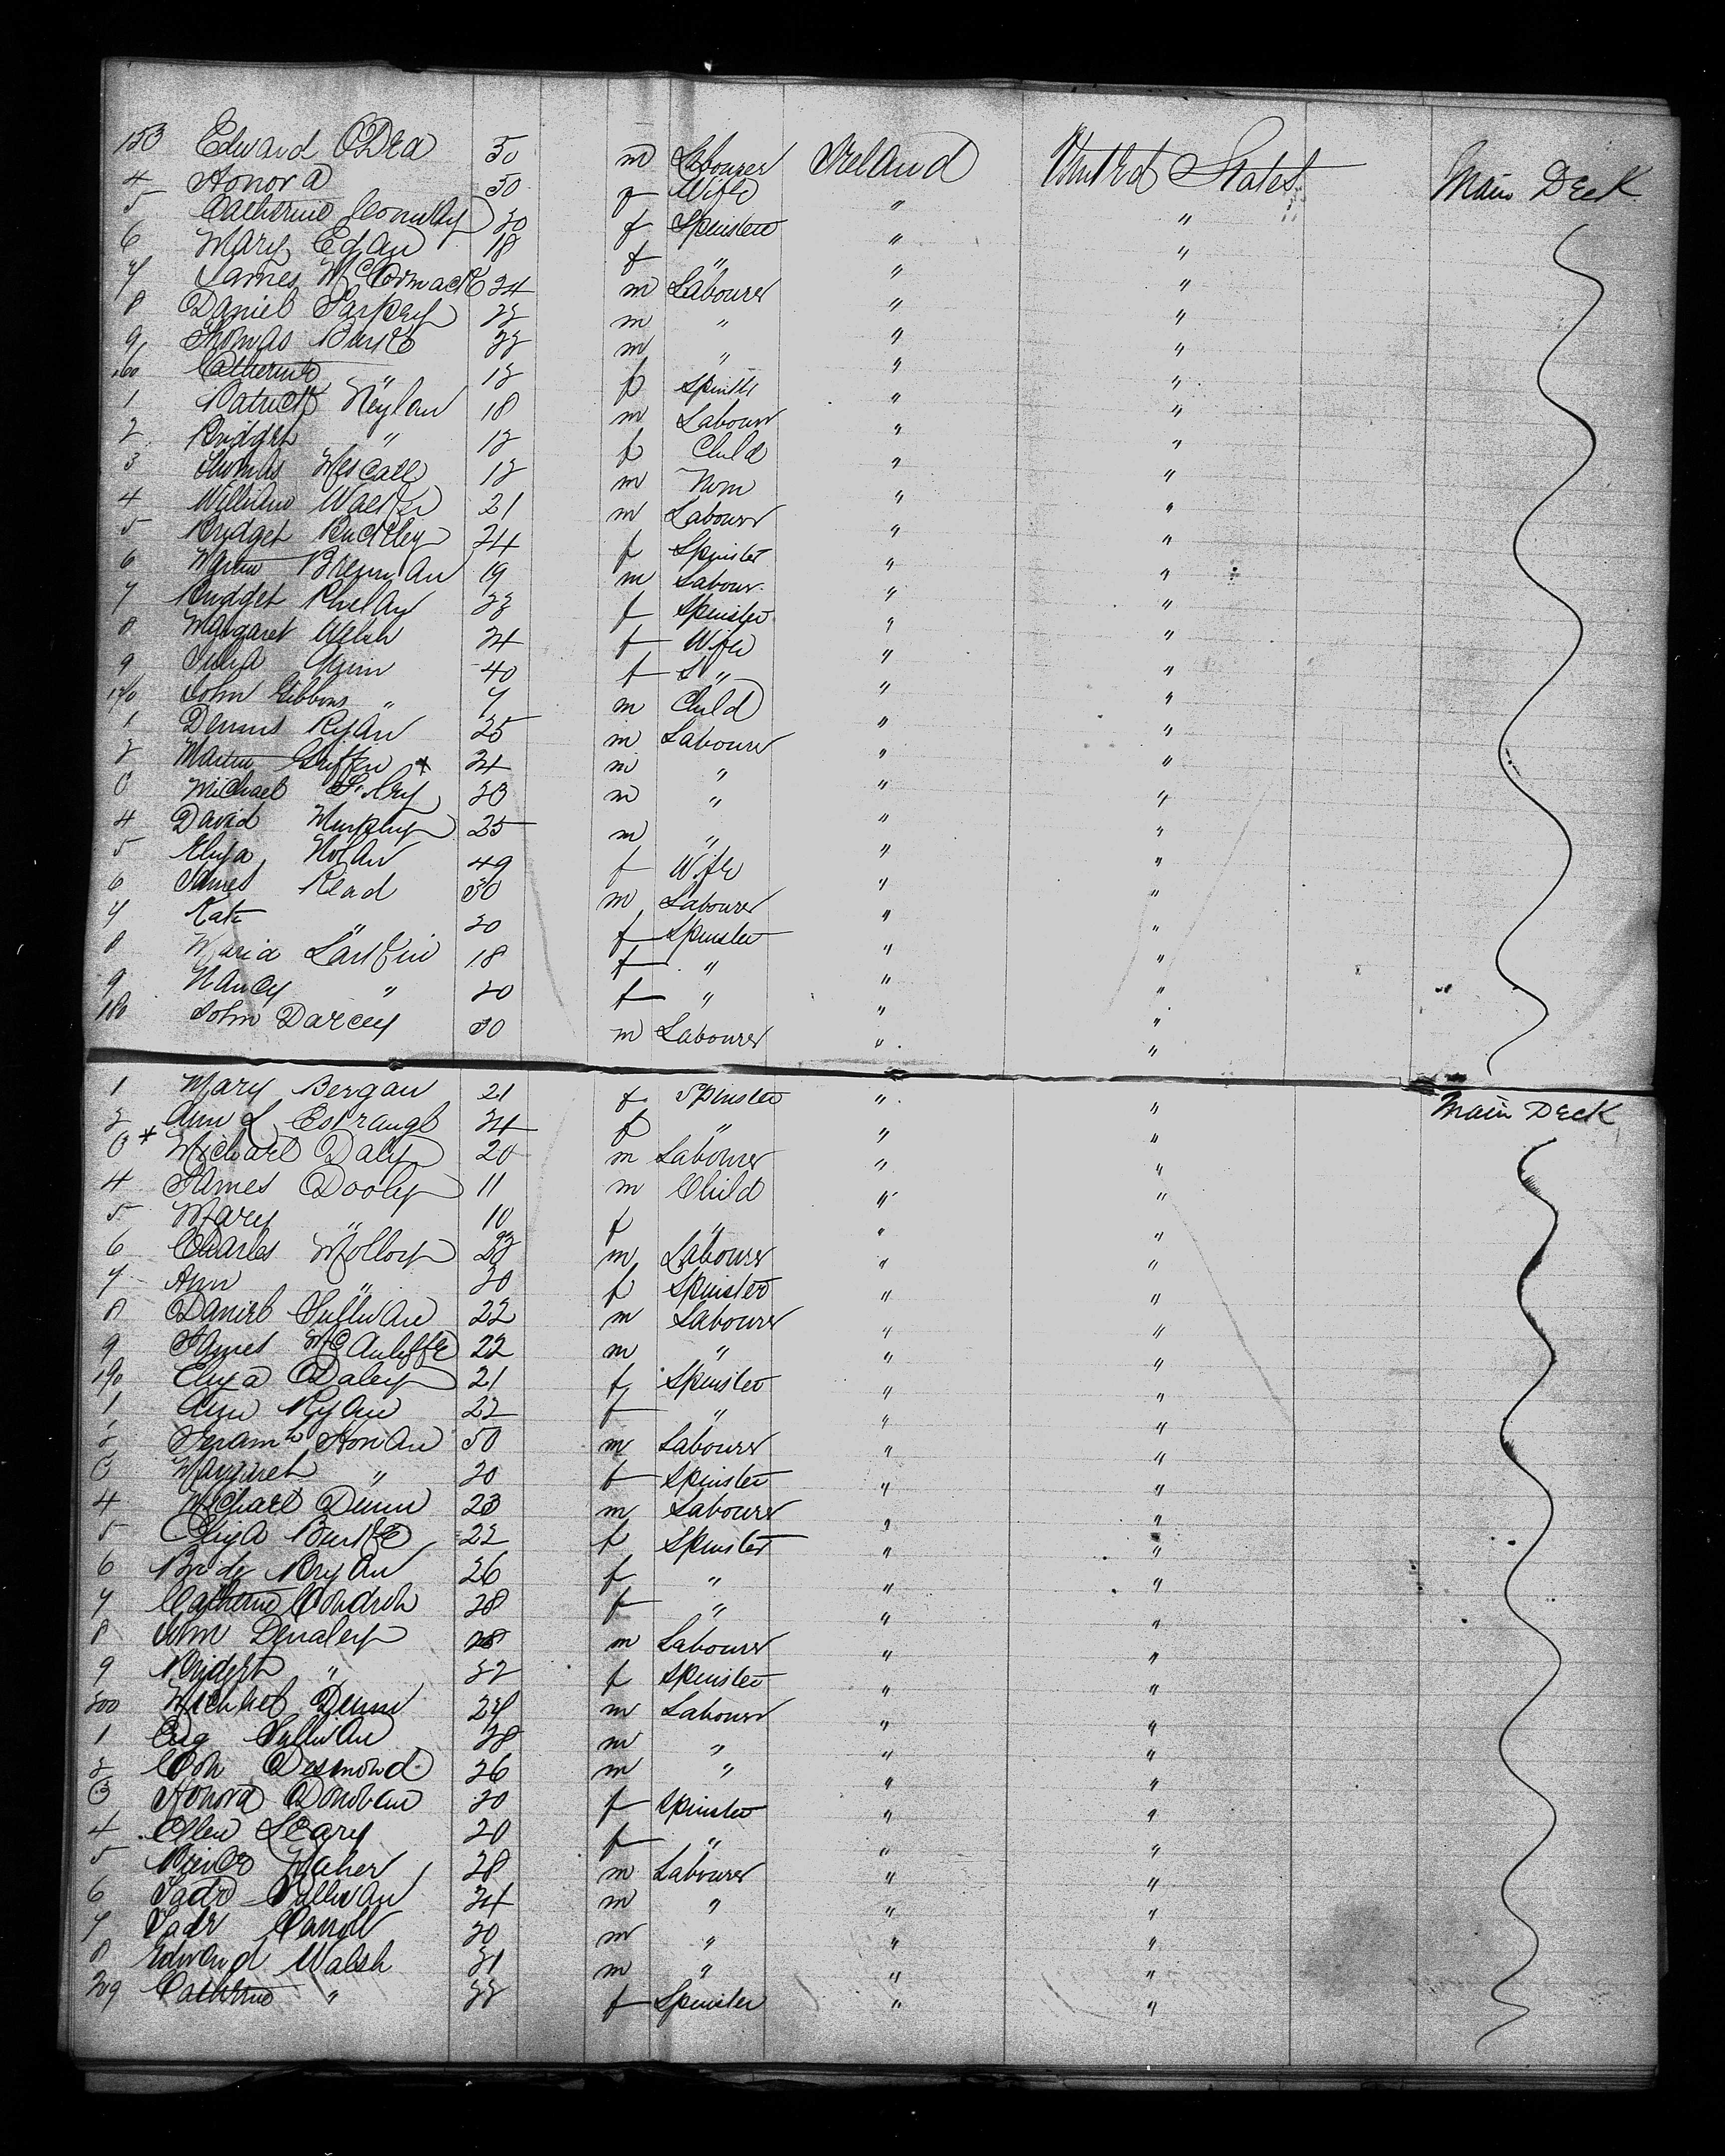 153 Edward ODea 50 m Labourer Ireland United States Main Deck
4 Honora 50 f Wife " "
5 Catherine Connolly 20 f Spinster " "
6 Mary Egan 18 f " " "
7 James McCormack 24 m Labourer " "
8 Daniel 22 m " " "
9 Thomas Burke 22 m " " "
160 Catherine " 12 f Spinster " "
1 Patrick Neylan 18 m Labourer " "
2 Bridget " 12 f Child " "
3 Thomas 12 m " "
4 William Walker 21 m Labourer " "
5 Bridget Buckley 24 f Spinster " "
6 Martin Brennan 19 m Labour " "
7 Bridget Phelan 22 f Spinster " "
8 Margaret Welsh 24 f Wife " "
9 Julia 40 f " " "
170 John Gibbons " 7 m Child " "
1 Dennis Ryan 25 m Labourer " "
2 Martin Griffin x 24 m " " "
3 Michael 23 m " " "
4 David Murphy 25 m " " "
5 Eliza Nolan 49 f Wife " "
6 James Read 30 m Labourer " "
7 Kate " 20 f Spinster " "
8 Maria Larkin 18 f " " "
9 Nancy " 20 f " " "
180 John Darcey 30 m Labourer " "
1 Mary Bergan 21 f Spinster " " Main Deck
2 Ann L Estrange 24 f " " "
3 * Michael Daly 20 m Labourer " "
4 James Dooly 11 m Child " "
5 Mary " 10 f " " "
6 Charles Molloy 22 m Labourer " "
7 Ann " 20 f Spinster " "
8 Daniel Sullivan 22 m Labourer " "
9 James McAuliffe 22 m " " "
190 Eliza Daley 21 f Spinster " "
1 Ann Ryan 22 f " " "
2 Jeramh Honan 50 m Labourer " "
3 Margaret " 20 f Spinster " "
4 Michael Dunn 23 m Labourer " "
5 Eliza Burke 22 f Spinster " "
6 Bridg Ryan 26 f " " "
7 Catherine Condron 28 f " " "
8 John 28 m Labourer " "
9 Bridget " 22 f Spinster " "
200 Michael Dunn 24 m Labourer " "
1 Sullivan 28 m " " "
2 Con Desmond 26 m " " "
3 Honora Donovan 20 f Spinster " "
4 Ellen Leary 20 f " " "
5 Pierce Maher 28 m Labourer " "
6 Sullivan 24 m " " "
7 Carroll 20 m " " "
8 Edward Walsh 21 m " " "
209 Catherine " 22 f Spinster " "